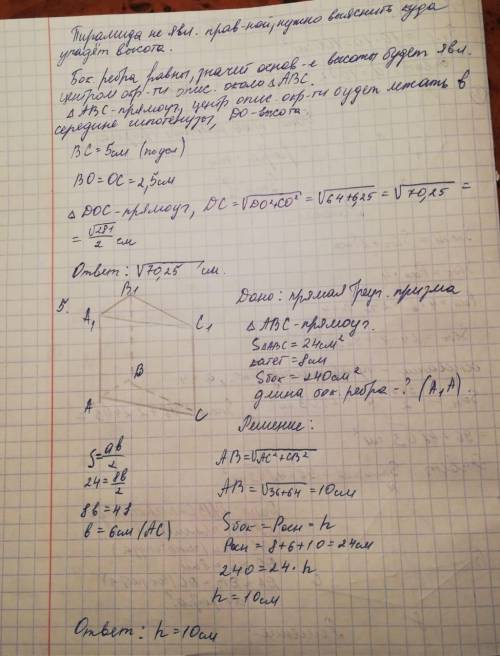 Пирамида не явл. прав-ной, нужно выяснить куда
упадёт высота.
Бок. ребра равны, значит основ-е высоты будет явл.
центром окр-ти опис. около △ABC.
△ABC-прямоуг, центр опис. окр-ти будет лежать в
середине гипотенузы, DO-высота.
BC=5см (подсл)
BO=OC=2,5см
△DOC-прямоуг, DC=√DO²+CO²=√64+6,25=√70,25=
=√281/2 см
Ответ: √70,25 см.
5.
B1
A1
C1
B
A
C
Дано: прямая треуг. призма
△ABC-прямоуг.
S△ABC=24см²
катет=8см
Sбок=240см²
длина бок. ребра-? (A1A).
Решение:
S=ab/2
24=8b/2
8b=48
b=6см (AC)
AB=√AC²+CB²
AB=√36+64=10см
Sбок=Pосн=h
Pосн=8+6+10=24см
240=24·h
h=10см
Ответ: h=10см